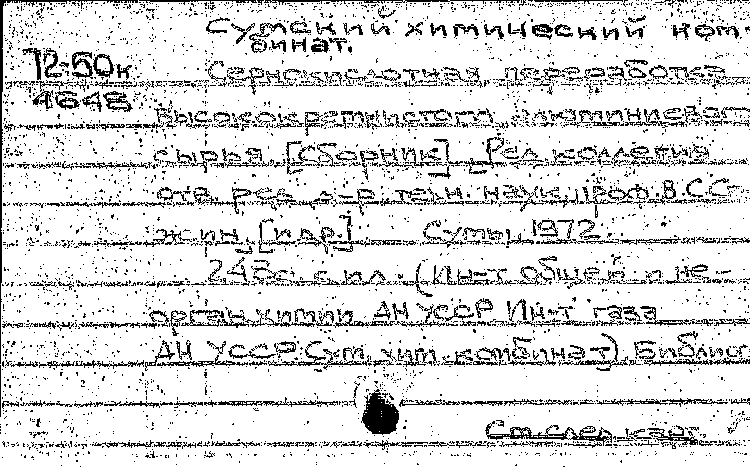 Сумский химический ком-
бинат.
72-50к
4648
Сернокислотная переработка
высококремнистого алюминиевого
сырья. [Сборник]. Ред коллегия
отв. ред. д-р техн. наук, проф. В.С.С-
жин. [и др.]. Сумы, 1972.
248с. с ил. (Ин-т общей и не-
орган химии АН УССР Ин-т газа
АН УССР. Сум. хим. комбинат) Библиог
См. след. карт.